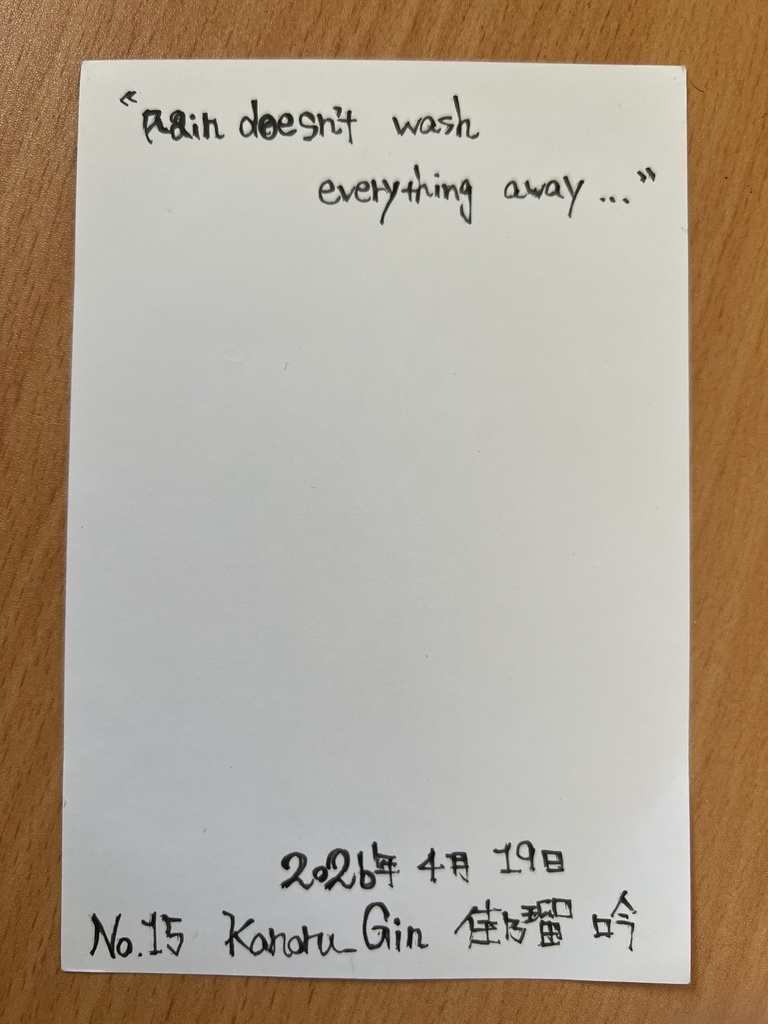 “Rain doesn't wash
everything away...”
2026年 4月 19日
No.15 Kanaru_Gin 佳乃瑠 吟